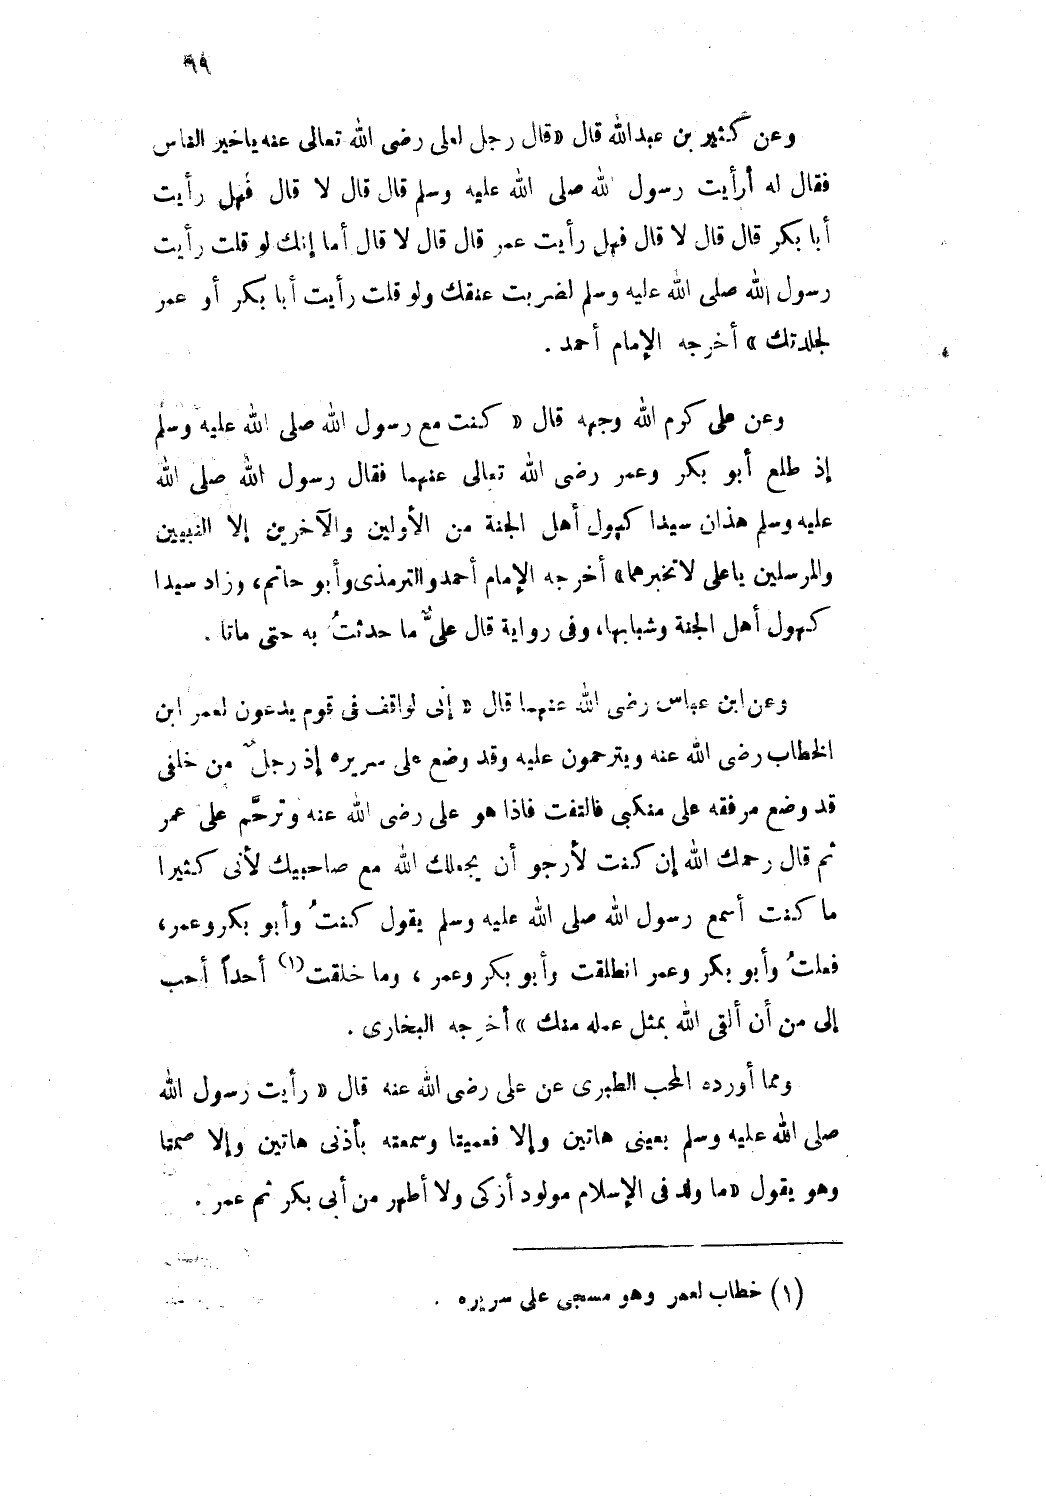 ٩٩
وعن كثير بن عبدالله قال «قال رجل لعلى رضى الله تعالى عنه ياخير الناس
فقال له أرأيت رسول الله صلى الله عليه وسلم قال قال لا قال فهل رأيت
أبا بكر قال قال لا قال فهل رأيت عمر قال قال لا قال أما إنك لو قلت رأيت
رسول الله صلى الله عليه وسلم لضربت عنقك ولو قلت رأيت أبا بكر أو عمر
لجلدتك» أخرجه الإمام أحمد .
وعن على كرم الله وجهه قال « كنت مع رسول الله صلى الله عليه وسلم
إذ طلع أبو بكر وعمر رضى الله تعالى عنهما فقال رسول الله صلى الله
عليه وسلم هذان سيدا كهول أهل الجنة من الأولين والآخرين إلا النبيين
والمرسلين ياعلى لاتخبرهما» أخرجه الإمام أحمد والترمذى وأبو حاتم، وزاد سيدا
كهول أهل الجنة وشبابها، وفى رواية قال علىٌّ ما حدثتُ به حتى ماتا .
وعن ابن عباس رضى الله عنهما قال « إنى لواقف فى قوم يدعون لعمر ابن
الخطاب رضى الله عنه ويترحمون عليه وقد وضع على سريره إذ رجلٌ من خلفى
قد وضع مرفقه على منكبى فالتفت فاذا هو على رضى الله عنه وترحَّم على عمر
ثم قال رحمك الله إن كنت لأرجو أن يجعلك الله مع صاحبيك لأنى كثيرا
ما كنت أسمع رسول الله صلى الله عليه وسلم يقول كنتُ وأبو بكر وعمر،
فعلتُ وأبو بكر وعمر انطلقت وأبو بكر وعمر ، وما خلقت(١) أحداً أحب
إلى من أن ألقى الله بمثل عمله منك » أخرجه البخارى .
ومما أورده المحب الطبرى عن على رضى الله عنه قال « رأيت رسول الله
صلى الله عليه وسلم بعينى هاتين وإلا فعميتا وسمعته بأذنى هاتين وإلا صمتا
وهو يقول «ما ولد فى الإسلام مولود أزكى ولا أطهر من أبى بكر ثم عمر .
(١) خطاب لعمر وهو مسجى على سريره .